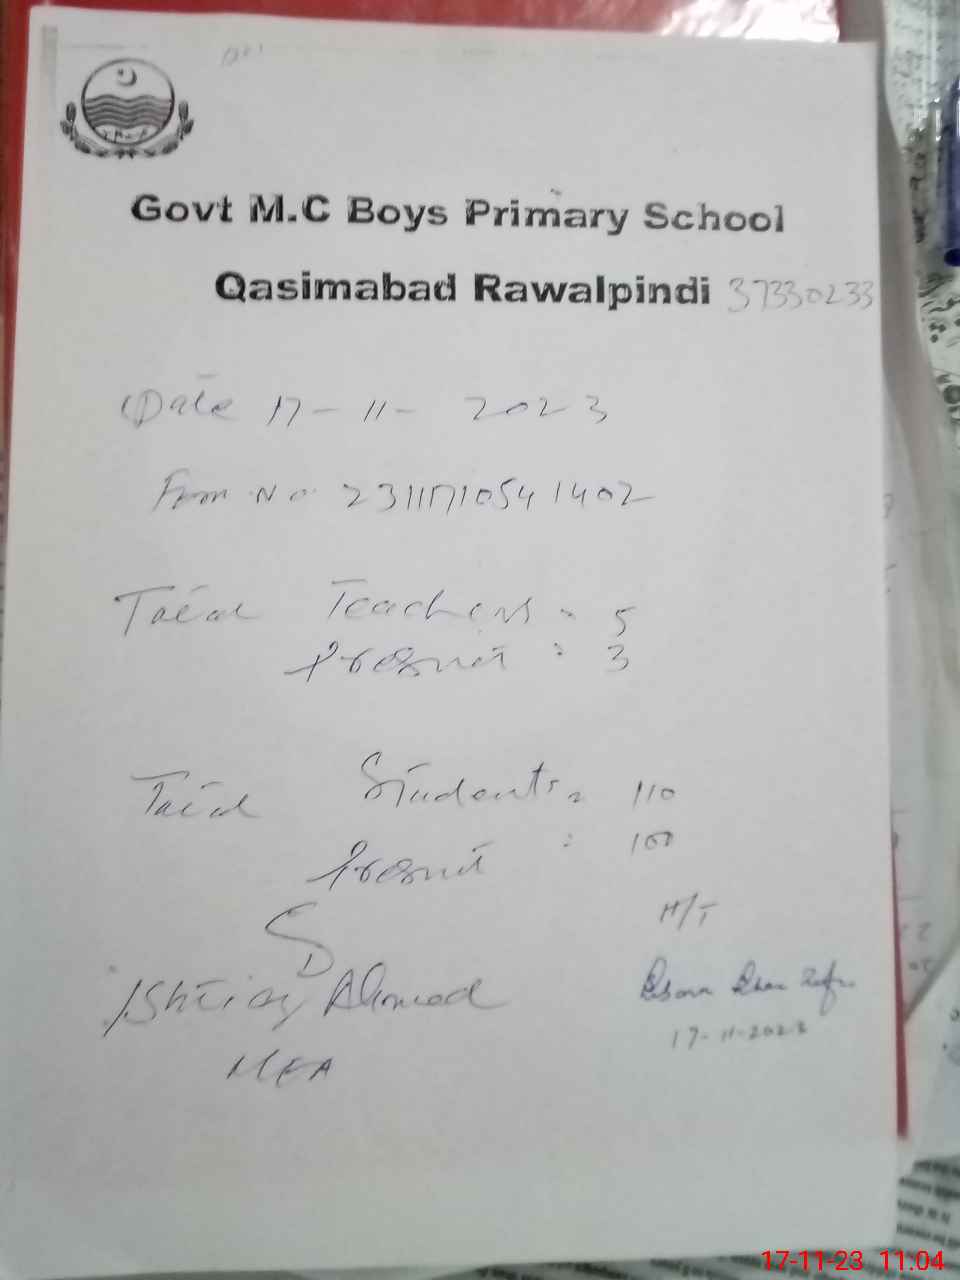 Govt M.C Boys Primary School
Qasimabad Rawalpindi 37330233
Date 17-11-2023
Form No. 23111710541402
Total Teachers = 5
Present : 3
Total Students = 110
Present : 100
H/T
SD
Ishtiaq Ahmad
17-11-2023
MEA
17-11-23 11:04